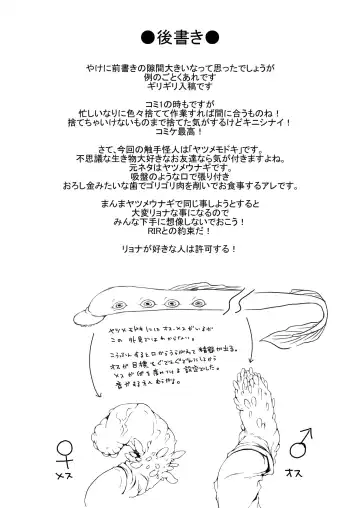 ●後書き●
やけに前書きの隙間大きいなって思ったでしょうが
例のごとくあれです
ギリギリ入稿です
コミ1の時もですが
忙しいなりに色々捨てて作業すれば間に合うものね！
捨てちゃいけないものまで捨ててた気がするけどキニシナイ！
コミケ最高！
さて、今回の触手怪人は「ヤツメモドキ」です。
不思議な生き物大好きなお友達なら気が付きますよね。
元ネタはヤツメウナギです。
吸盤のような口で張り付き
おろし金みたいな歯でゴリゴリ肉を削いでお食事するアレです。
まんまヤツメウナギで同じ事しようとすると
大変リョナな事になるので
みんな下手に想像しないでおこう！
RIRとの約束だ！
リョナが好きな人は許可する！
ヤツメモドキにはオス・メスがいるが
この外見ではわからない。
こうふんすると口からうらがえって
オスが
メスが
♀
メス
♂
オス